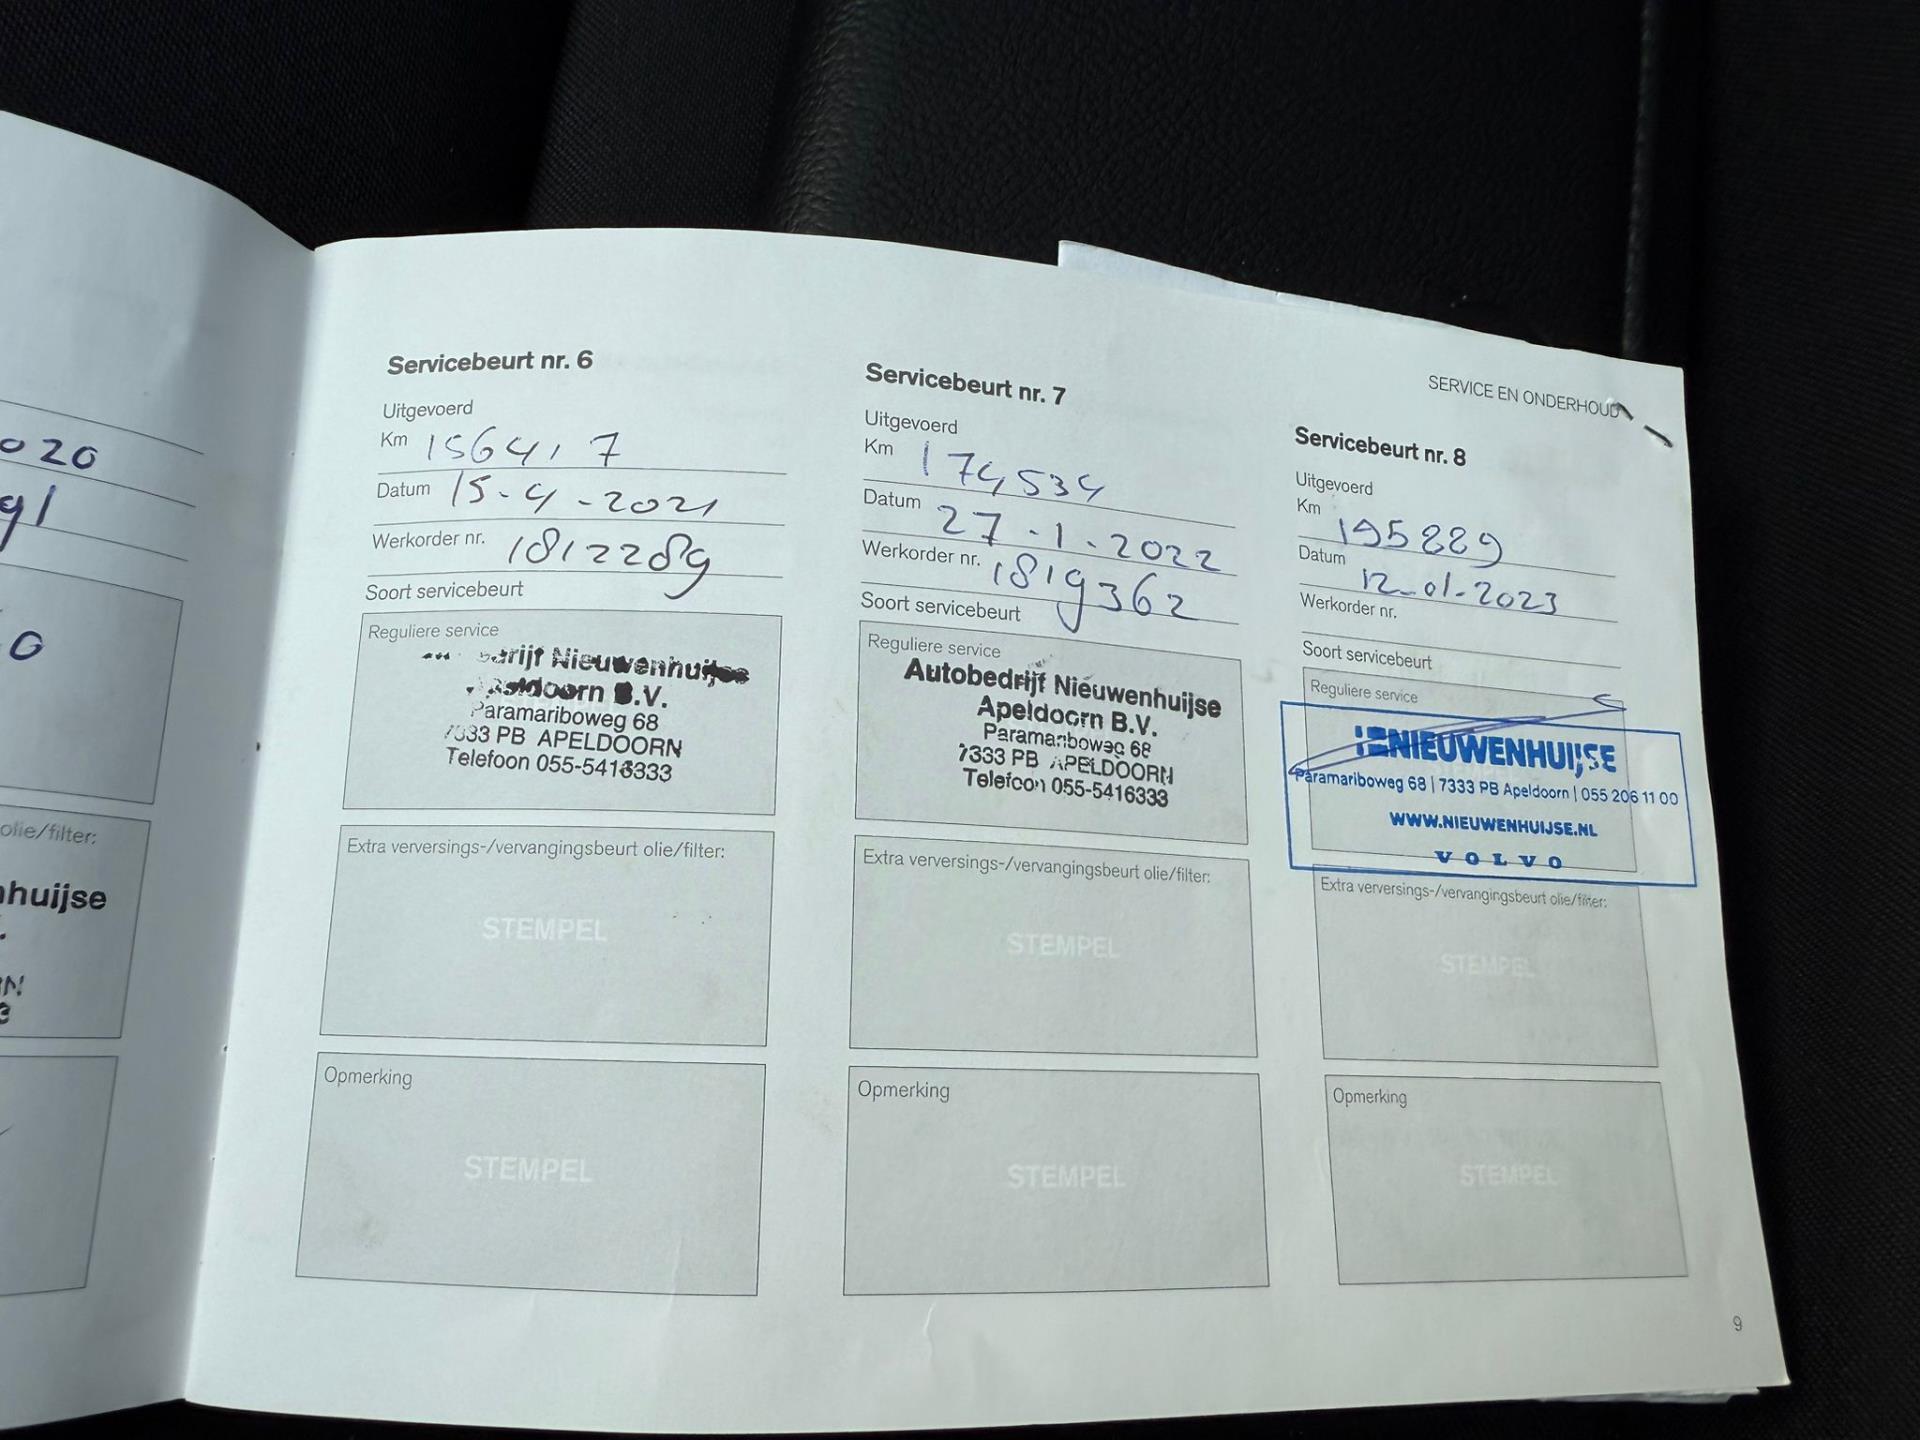 020
91
0
olie/filter:
nhuijse
Servicebeurt nr. 6
Uitgevoerd
Km 156417
Datum 15-4-2021
Werkorder nr. 1812289
Soort servicebeurt
Reguliere service
drijf Nieuwenhuijse
Apeldoorn B.V.
Paramariboweg 68
7333 PB APELDOORN
Telefoon 055-5416333
Extra verversings-/vervangingsbeurt olie/filter:
STEMPEL
Opmerking
STEMPEL
Servicebeurt nr. 7
Uitgevoerd
Km 174534
Datum 27-1-2022
Werkorder nr. 1819362
Soort servicebeurt
Reguliere service
Autobedrijf Nieuwenhuijse
Apeldoorn B.V.
Paramariboweg 68
7333 PB APELDOORN
Telefoon 055-5416333
Extra verversings-/vervangingsbeurt olie/filter:
STEMPEL
Opmerking
STEMPEL
SERVICE EN ONDERHOUD
Servicebeurt nr. 8
Uitgevoerd
Km 195889
Datum 12-01-2023
Werkorder nr.
Soort servicebeurt
Reguliere service
NIEUWENHUIJSE
Paramariboweg 68 | 7333 PB Apeldoorn | 055 206 11 00
WWW.NIEUWENHUIJSE.NL
VOLVO
Extra verversings-/vervangingsbeurt olie/filter:
STEMPEL
Opmerking
STEMPEL
9